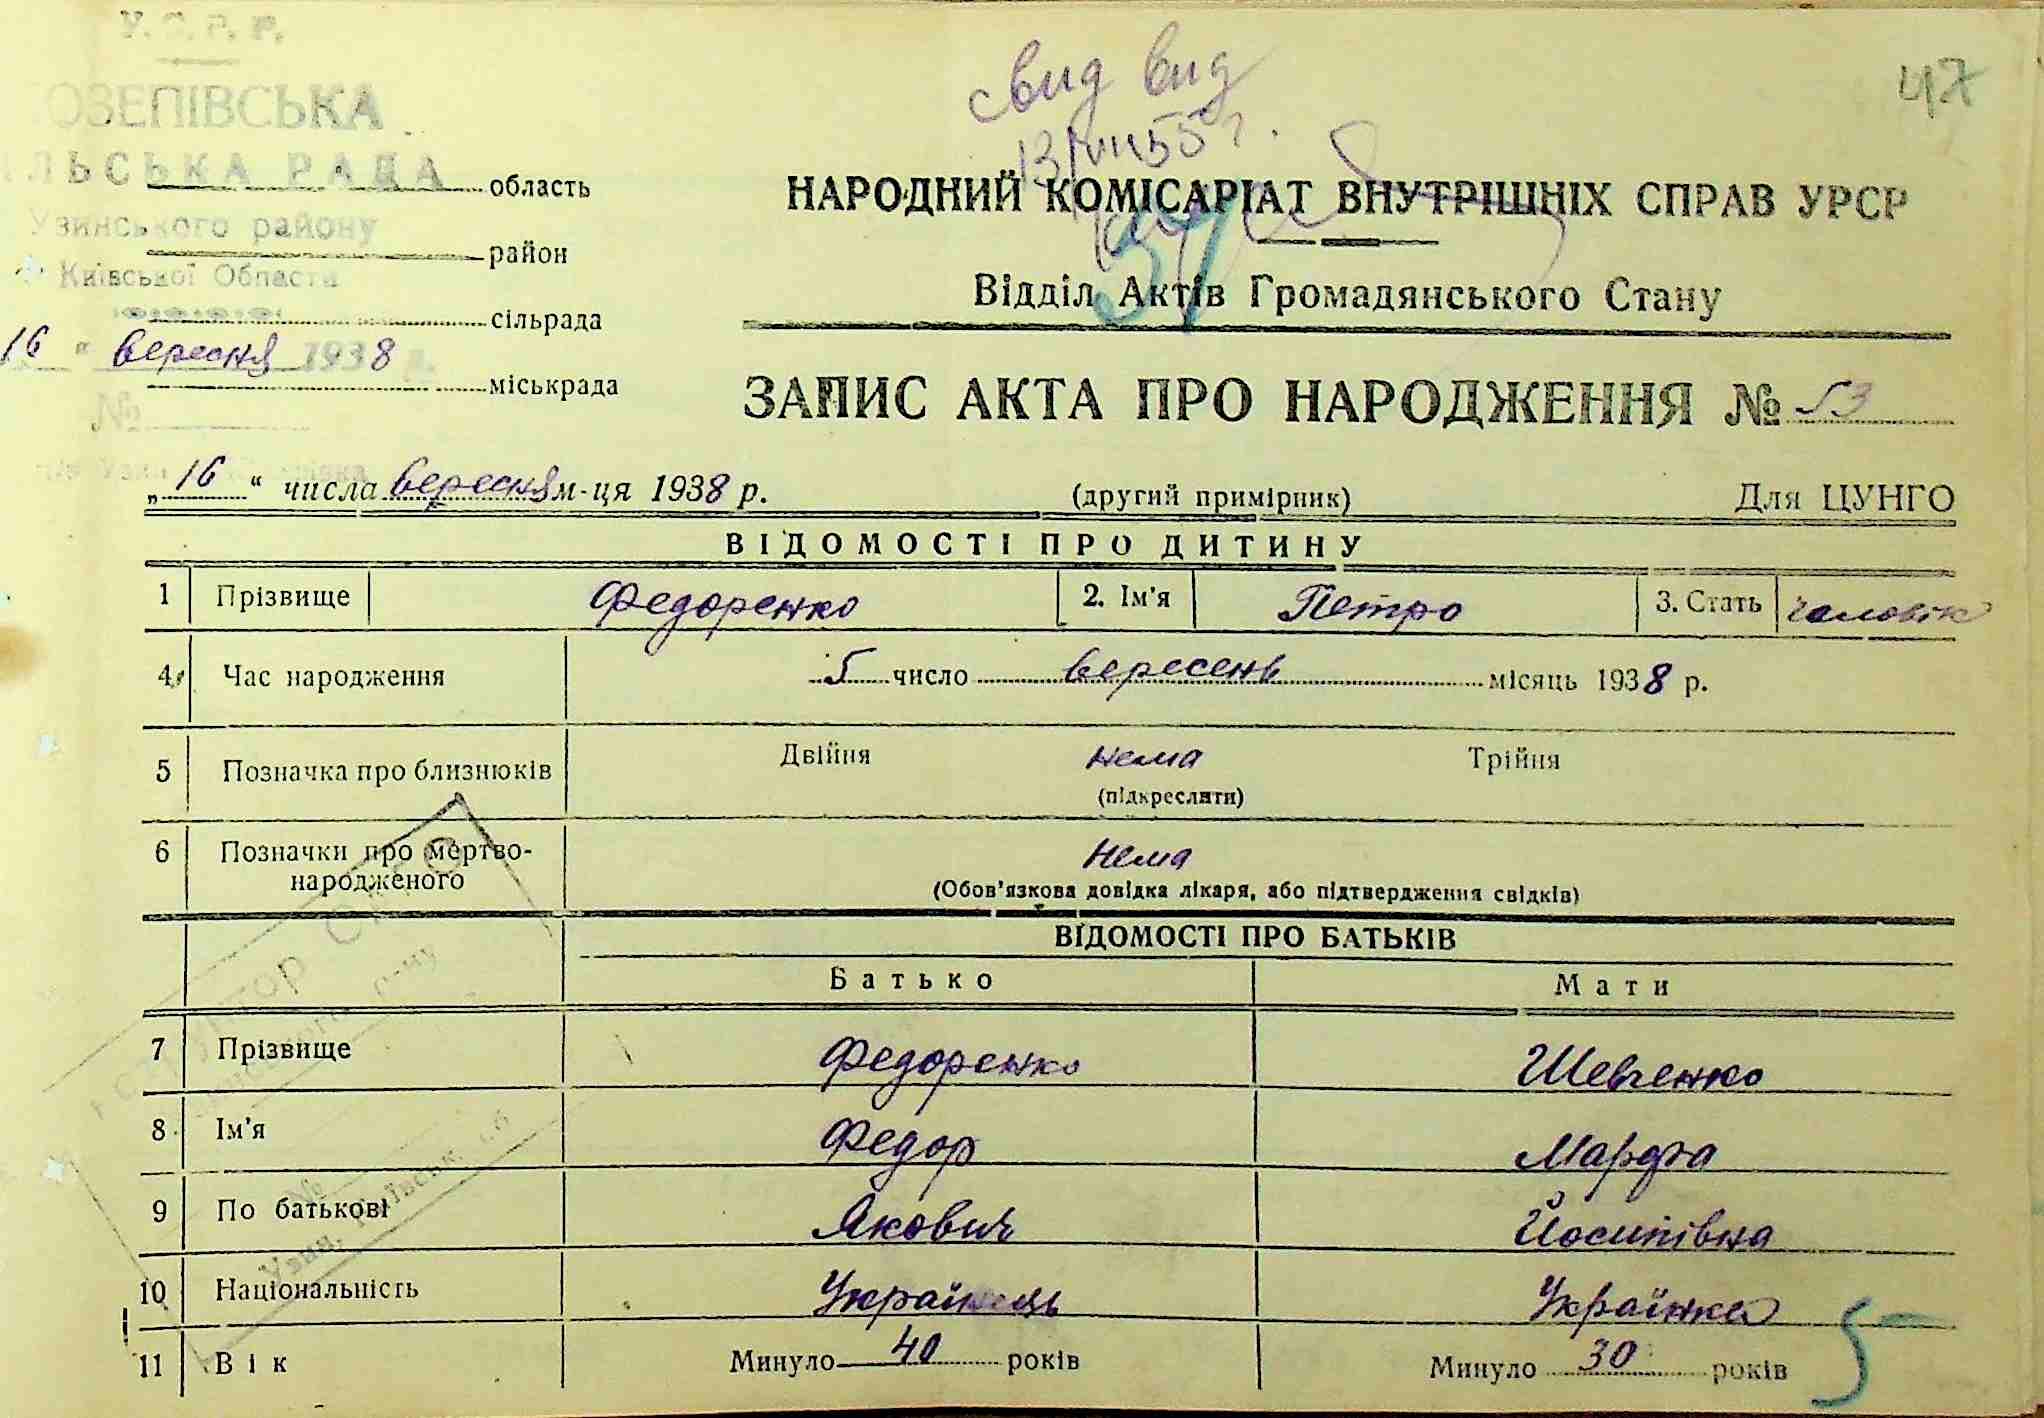 У.С.Р.Р.
ОЗЕПІВСЬКА
ЛЬСЬКА РАДА
область
Узинського району
район
Київської Области
сільрада
16 " вересня 1938 р.
міськрада
№
свид вид
13/VIII 55 г.
47
37
НАРОДНИЙ КОМІСАРІАТ ВНУТРІШНІХ СПРАВ УРСР
Відділ Актів Громадянського Стану
ЗАПИС АКТА ПРО НАРОДЖЕННЯ № 53
„16“ числа вересня м-ця 1938 р. (другий примірник) Для ЦУНГО
ВІДОМОСТІ ПРО ДИТИНУ
1 Прізвище Федоренко 2. Ім'я Петро 3. Стать чоловік
4 Час народження 5 число вересень місяць 1938 р.
5 Позначка про близнюків Двійня нема Трійня
(підкреслити)
6 Позначки про мертво-
народженого нема
(Обов'язкова довідка лікаря, або підтвердження свідків)
ВІДОМОСТІ ПРО БАТЬКІВ
Батько Мати
7 Прізвище Федоренко Шевченко
8 Ім'я Федор Марфа
9 По батькові Якович Йосипівна
10 Національність Українець Українка
11 Вік Минуло 40 років Минуло 30 років
5
№
Узин, Київськ. об